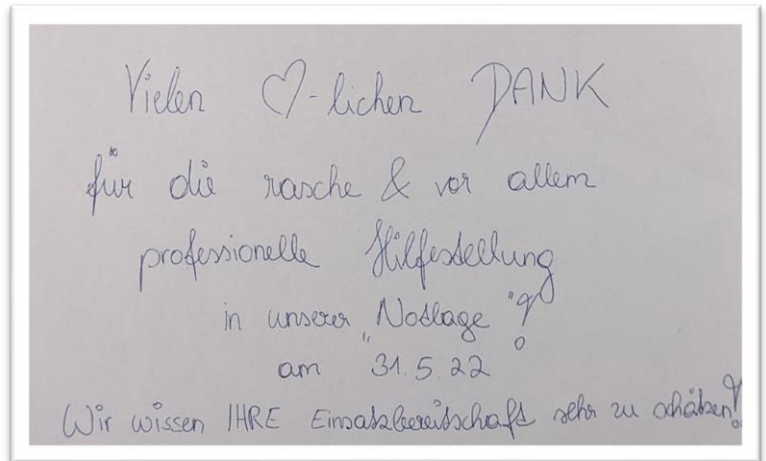 Vielen ♡-lichen DANK
für die rasche & vor allem
professionelle Hilfestellung
in unserer „Notlage“!
am 31.5.22
Wir wissen IHRE Einsatzbereitschaft sehr zu schätzen!